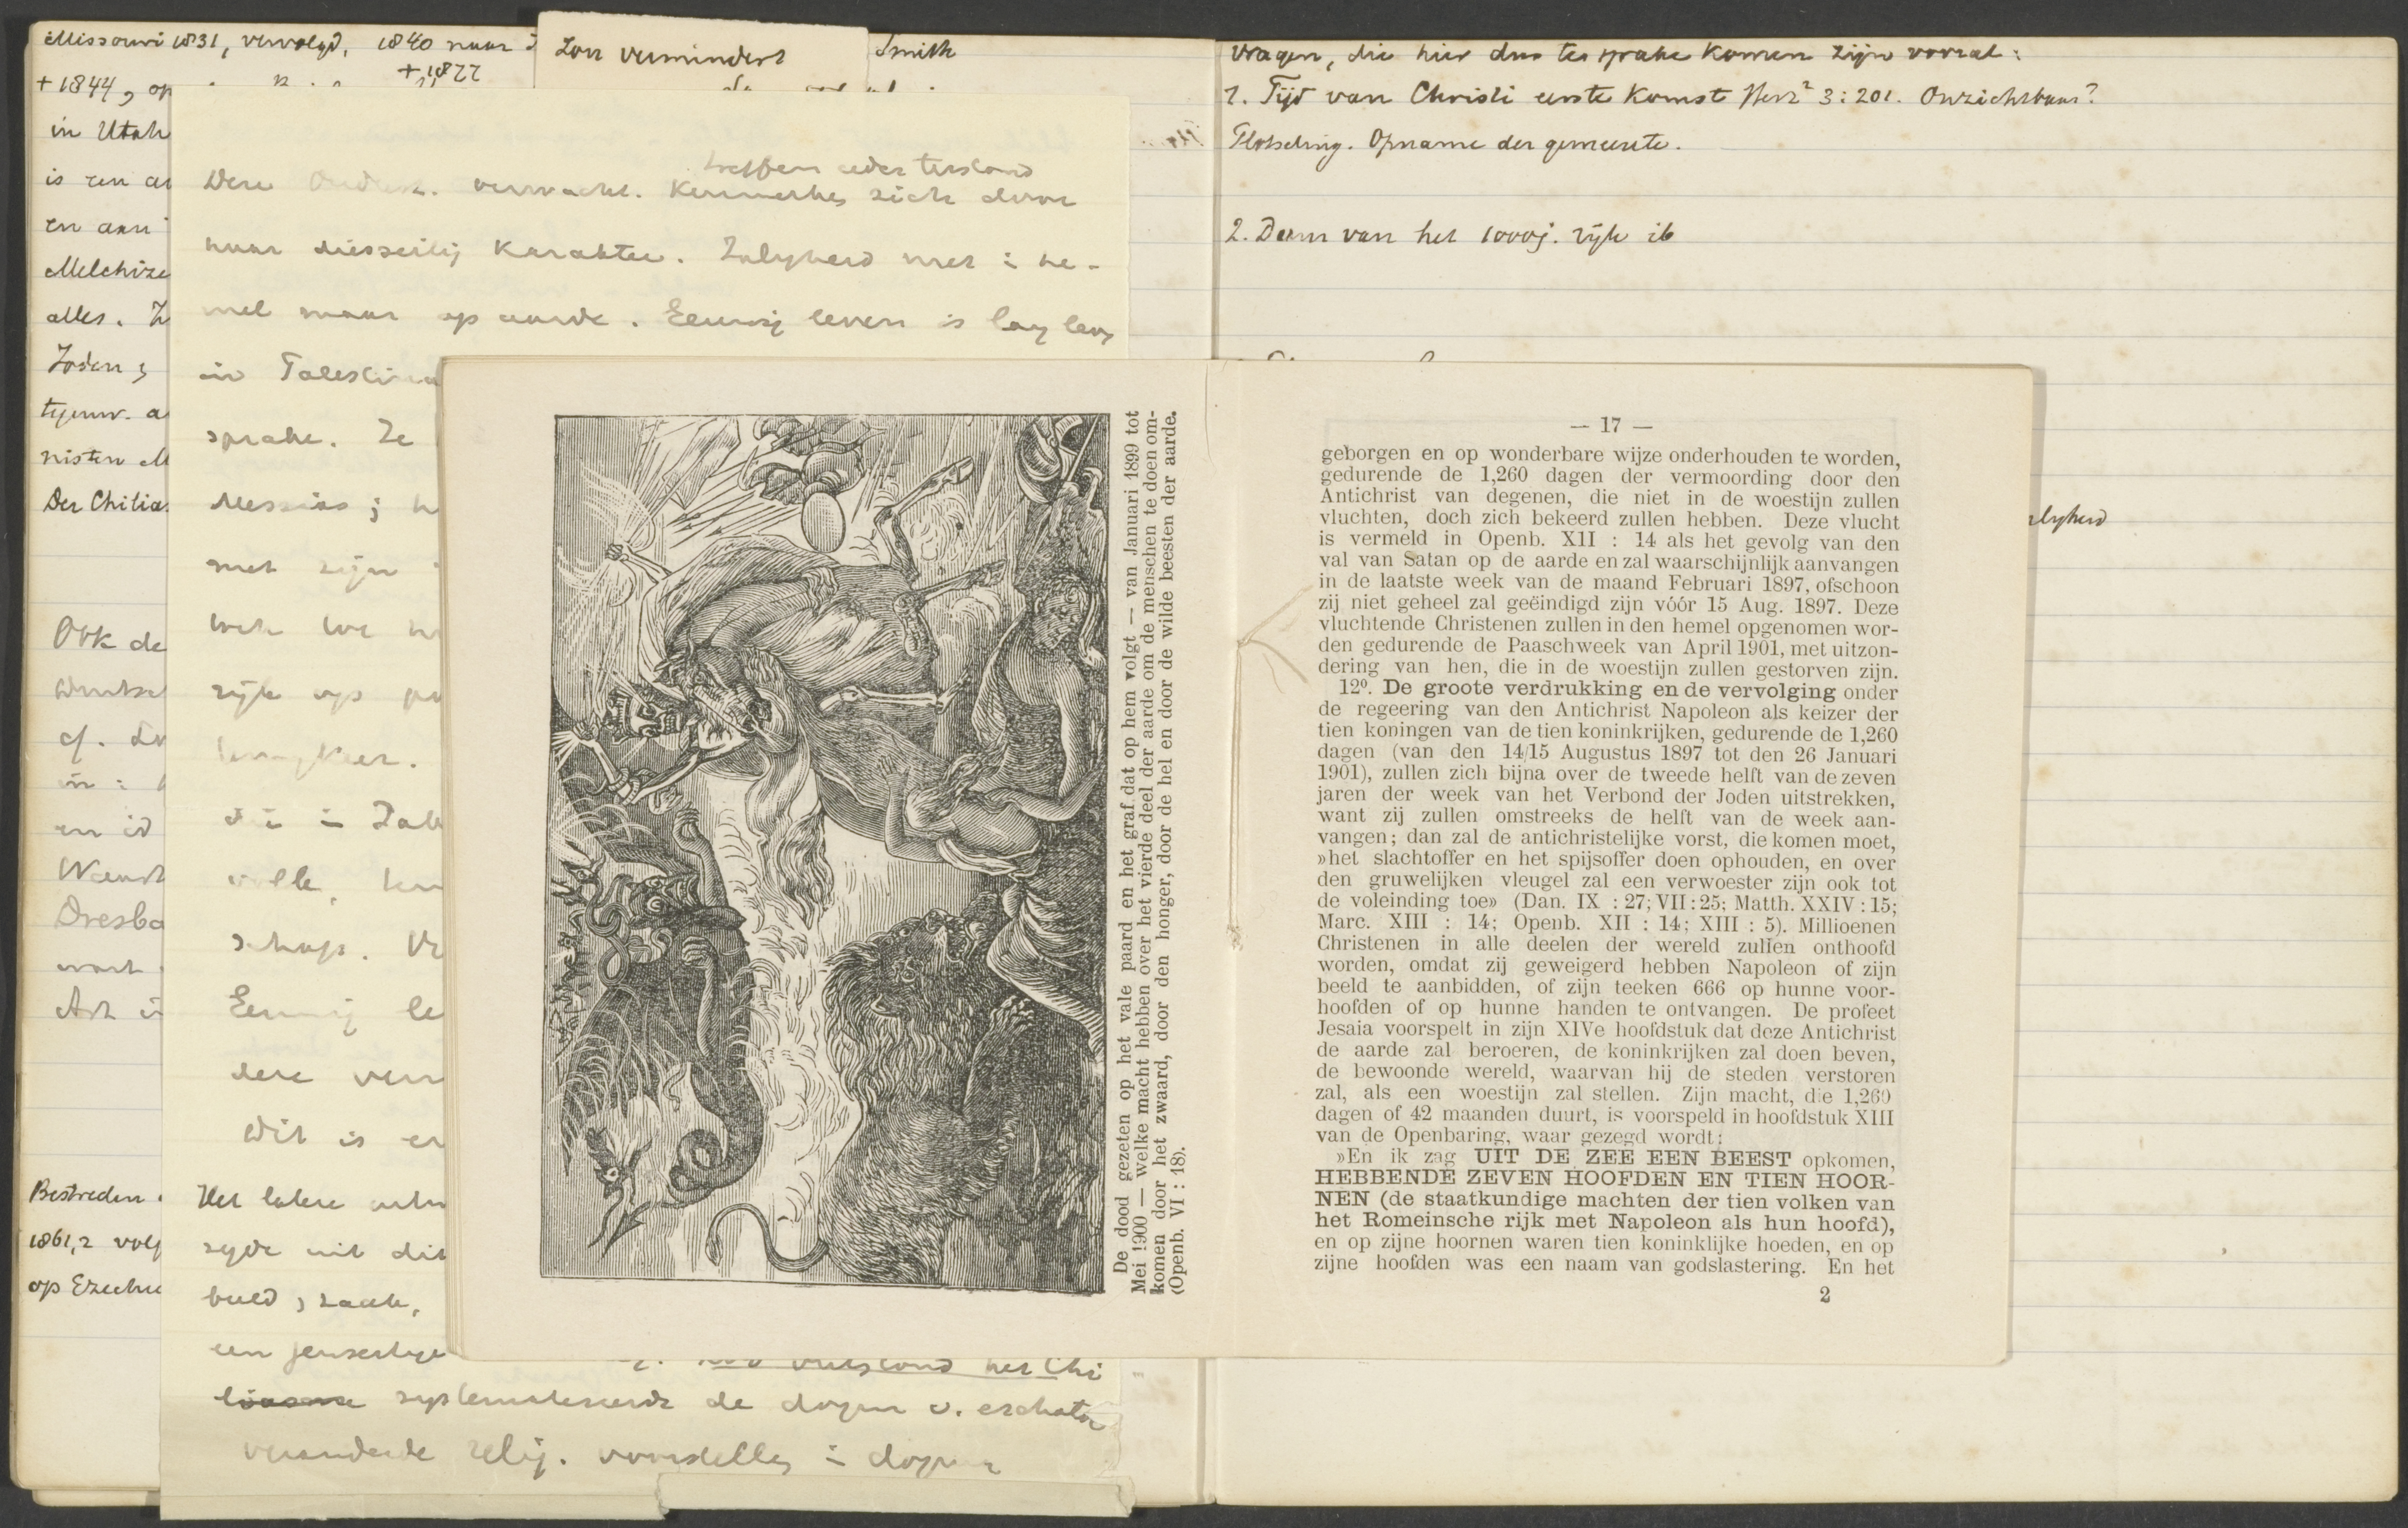 Missouri 1831, vervolgd, 1840 naar
+ 1877
+ 1844, op
in Utah
is een
en aan
Melchize
alles.
Joden;
tegenw. a
nisten M
Der Chilia
Ook de
Duitsch
cf.
en id
Wendt
Dresba
Art
Bestreden
1861,2 volg
op Ezechi
Zon vermindert
Smith
treffen ieder toestand
Deze verwacht. Kenmerken zich door
haar diesseitig karakter. Zaligheid niet i he-
mel maar op aarde. Eeuwig leven is lang leven
in Palestina
sprake. Ze
Messias; h
met zijn
rijk op
volle,
schap. Ve
Eeuwig le
dere verw
Dit is er
Het latere
zijde uit dit
beeld, zaak,
een jenseitige
ontstond het Chi
liasme systematiseerde de dogm v. eschato
veranderde relig. voorstelling i dogma
De dood gezeten op het vale paard en het graf dat op hem volgt — van Januari 1899 tot
Mei 1900 — welke macht hebben over het vierde deel der aarde om de menschen te doen om-
komen door het zwaard, door den honger, door de hel en door de wilde beesten der aarde.
(Openb. VI : 18).
vragen, die hier dus ter sprake komen zijn vooral:
1. Tijd van Christi eerste komst Herz² 3:201. Onzichtbaar?
Plotseling. Opname der gemeente.
2. Duur van het 1000j. rijk ib
— 17 —
geborgen en op wonderbare wijze onderhouden te worden,
gedurende de 1,260 dagen der vermoording door den
Antichrist van degenen, die niet in de woestijn zullen
vluchten, doch zich bekeerd zullen hebben. Deze vlucht
is vermeld in Openb. XII : 14 als het gevolg van den
val van Satan op de aarde en zal waarschijnlijk aanvangen
in de laatste week van de maand Februari 1897, ofschoon
zij niet geheel zal geëindigd zijn vóór 15 Aug. 1897. Deze
vluchtende Christenen zullen in den hemel opgenomen wor-
den gedurende de Paaschweek van April 1901, met uitzon-
dering van hen, die in de woestijn zullen gestorven zijn.
12⁰. De groote verdrukking en de vervolging onder
de regeering van den Antichrist Napoleon als keizer der
tien koningen van de tien koninkrijken, gedurende de 1,260
dagen (van den 14/15 Augustus 1897 tot den 26 Januari
1901), zullen zich bijna over de tweede helft van de zeven
jaren der week van het Verbond der Joden uitstrekken,
want zij zullen omstreeks de helft van de week aan-
vangen; dan zal de antichristelijke vorst, die komen moet,
»het slachtoffer en het spijsoffer doen ophouden, en over
den gruwelijken vleugel zal een verwoester zijn ook tot
de voleinding toe» (Dan. IX : 27; VII : 25; Matth. XXIV : 15;
Marc. XIII : 14; Openb. XII : 14; XIII : 5). Millioenen
Christenen in alle deelen der wereld zullen onthoofd
worden, omdat zij geweigerd hebben Napoleon of zijn
beeld te aanbidden, of zijn teeken 666 op hunne voor-
hoofden of op hunne handen te ontvangen. De profeet
Jesaia voorspelt in zijn XIVe hoofdstuk dat deze Antichrist
de aarde zal beroeren, de koninkrijken zal doen beven,
de bewoonde wereld, waarvan hij de steden verstoren
zal, als een woestijn zal stellen. Zijn macht, die 1,260
dagen of 42 maanden duurt, is voorspeld in hoofdstuk XIII
van de Openbaring, waar gezegd wordt:
»En ik zag UIT DE ZEE EEN BEEST opkomen,
HEBBENDE ZEVEN HOOFDEN EN TIEN HOOR-
NEN (de staatkundige machten der tien volken van
het Romeinsche rijk met Napoleon als hun hoofd),
en op zijne hoornen waren tien koninklijke hoeden, en op
zijne hoofden was een naam van godslastering. En het
2